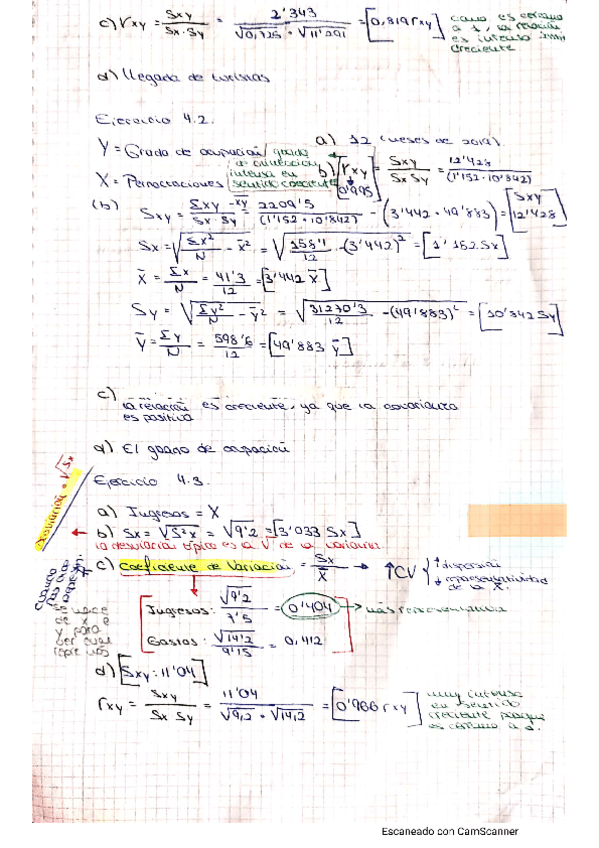 c) rxy = Sxy / Sx·Sy = 2'343 / √0,725 · √11'291 = [0,819 rxy] como es cercano a 1, la relación es intensa
creciente
d) llegada de turistas
Ejercicio 4.2.
Y = Grado de ocupación
X = Pernoctaciones
grado de correlación intensa en sentido creciente
a) 12 (meses de 2019).
b) rxy = Sxy / Sx Sy = 12'428 / (1'152·10'842)
0'995
(b) Sxy = Σxy - x̄ȳ / Sx·Sy = 2209'5 / (1'152·10'842) - (3'442·49'883) = [Sxy 12'428]
Sx = √Σx²/N - x̄² = √158'1/12 - (3'442)² = [1'152 Sx]
X̄ = Σx/N = 41'3/12 = [3'442 X̄]
Sy = √Σy²/N - ȳ² = √31270'3/12 - (49'883)² = [10'842 Sy]
Ȳ = Σy/N = 598'6/12 = [49'883 ȳ]
c)
la relación es creciente, ya que la covarianza
es positiva
d) El grado de ocupación
Ejercicio 4.3.
Desviación = √Sx
a) Ingresos = X
b) Sx = √S²x = √9'2 = [3'033 Sx]
la desviación típica es la √ de la varianza
c) Coeficiente de Variación = Sx / X̄ → ↑CV { ↑dispersión ↓representatividad de la X̄.
Ingresos: √9'2 / 7'5 = 0'404 → más representativa
Gastos: √14'2 / 9'15 = 0,412
d) [Sxy: 11'04]
rxy = Sxy / Sx Sy = 11'04 / √9,2 · √14,2 = [0'966 rxy] muy intensa en sentido creciente porque es cercano a 1.
Escaneado con CamScanner